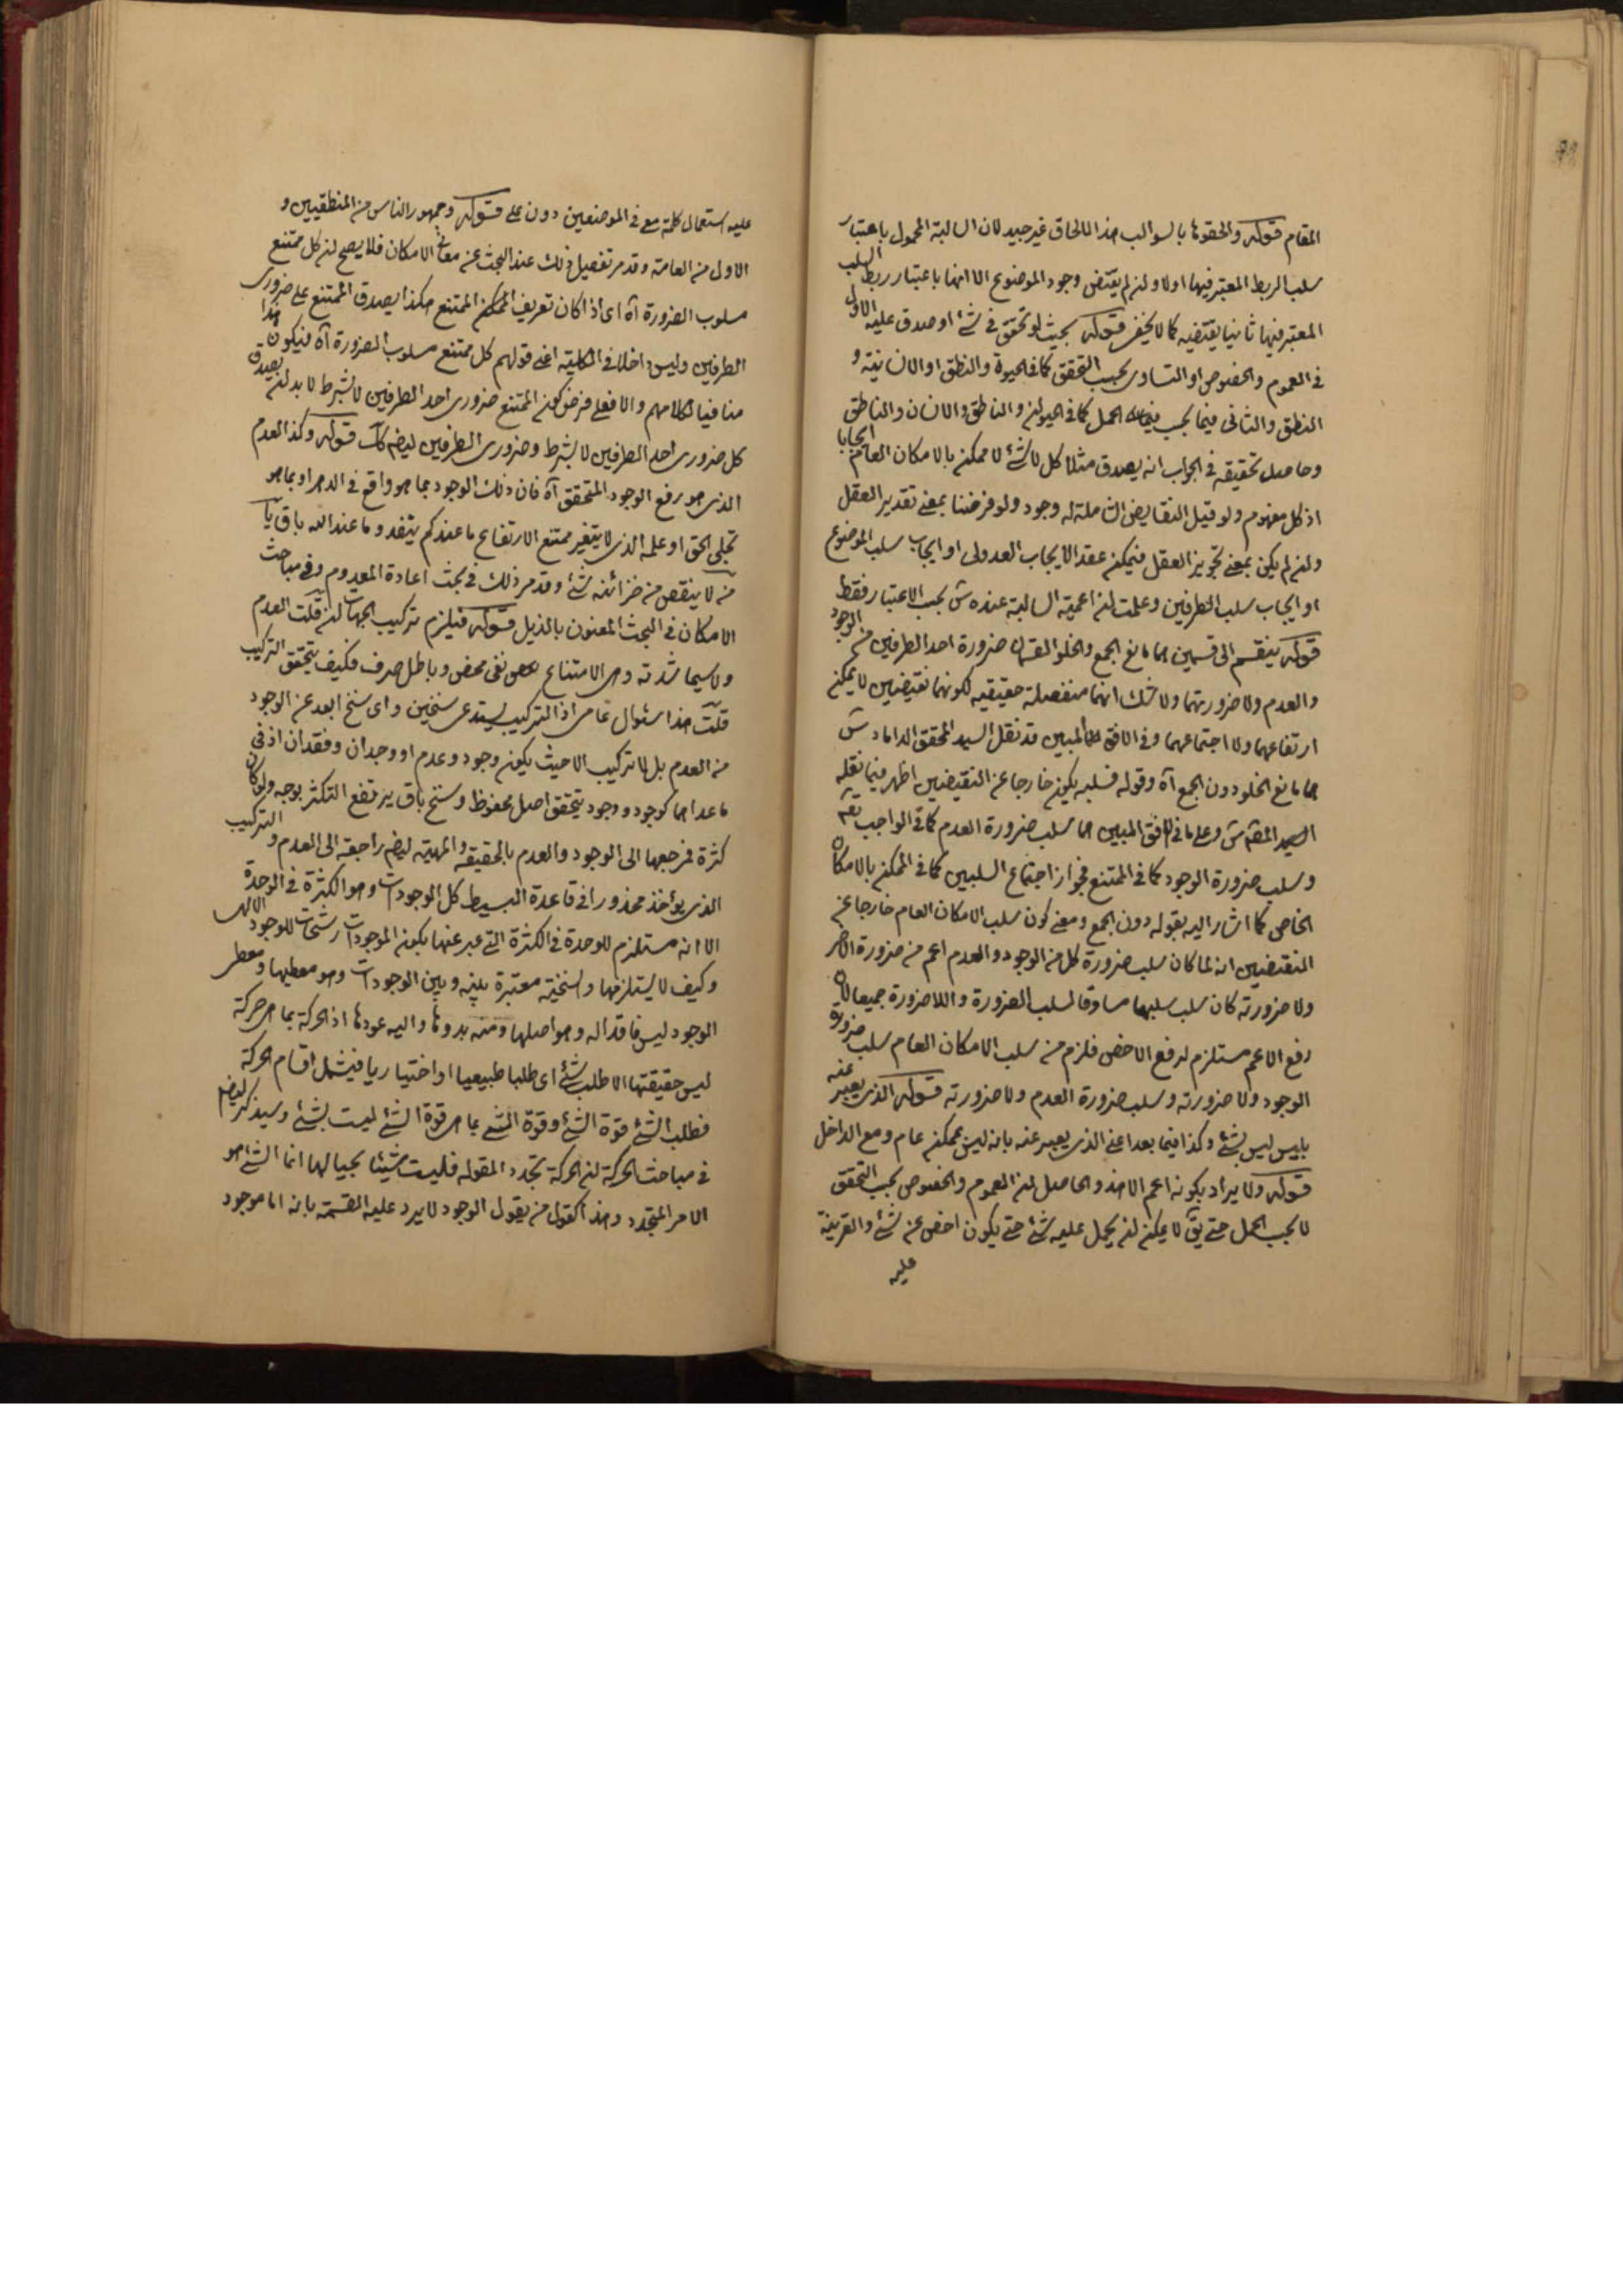 المقام قوله والحقوها بالسوالب هذا الالحاق غير جيد لان السالبة المحمول باعتبار
سلب الربط المعتبر فيها اولا ولن لم يقتض وجود الموضوع الا انها باعتبار ربط السلب
المعتبر فيها ثانيا يقتضيه كما لا يخفى قوله بحيث لو تحقق في شئ او صدق عليه الاول
في العموم والخصوص او التساوى بحسب التحقق كما في الحيوة والنطق او الانسانية و
النطق والثانى فيما بحسب الحمل كما في الحيوان والناطق والانسان والناطق
وحاصل تحقيقه في الجواب انه يصدق مثلا كل لا شئ لا ممكن بالامكان العام ايجابا
اذ كل مفهوم ولو قيل النقايض الشاملة له وجود ولو فرضنا بمعنى تقدير العقل
ولن لم يكن بمعنى تجويز العقل فيمكن عقد الايجاب العدولى او ايجاب سلب الموضوع
او ايجاب سلب الطرفين وعلمت لن اعمية السالبة عنده ش بحسب الاعتبار فقط
قوله ينقسم الى قسمين هما مانع الجمع والخلو القسمان ضرورة احد الطرفين من الوجود
والعدم ولا ضرورتهما ولا شك انهما منفصلة حقيقيه لكونهما نقيضين لا يمكن
ارتفاعهما ولا اجتماعهما وفى الافق المبين قد نقل السيد المحقق الداماد ش
هما مانع الخلو دون الجمع آه وقوله فسلبه يكون خارجا عن النقيضين اظهر فيما نقله
السيد المقه ش وعلى ما في الافق المبين هما سلب ضرورة العدم كما في الواجب تعه
وسلب ضرورة الوجود كما في الممتنع فجواز اجتماع السلبين كما في الممكن بالامكان
الخاص كما اشار اليه بقوله دون الجمع ومعنى كون سلب الامكان العام خارجا عن
النقيضين انه لما كان سلب ضرورة كل من الوجود والعدم اعم من ضرورة الاخر
ولا ضرورته كان سلب سلبهما مساوقا لسلب الضرورة واللاضرورة جميعا لان
رفع الاعم مستلزم لرفع الاخص فلزم من سلب الامكان العام سلب ضرورة
الوجود ولا ضرورته وسلب ضرورة العدم ولا ضرورته قوله الذى يعبر عنه
بليس ليس بشئ وكذا فيما بعد اعنى الذى يعبر عنه بانه ليس بممكن عام ومع الداخل
قوله ولا يراد بكونه اعم الاخذ والحاصل لن العموم والخصوص بحسب التحقق
لا بحسب الحمل حتى يق لا يمكن لن يحمل عليه شئ حتى يكون اخص عن شئ والقرينة
عليه
عليه استعمال كلمة مع في الموضعين دون على قوله وجمهور الناس من المنطقيين و
الاول من العامة وقد مر تفصيل ذلك عند البحث عن معانى الامكان فلا يصح لن كل ممتنع
مسلوب الضرورة آه اى اذا كان تعريف الممكن الممتنع هكذا يصدق الممتنع على ضرورى
الطرفين وليس داخلا في الكلية اعنى قولهم كل ممتنع مسلوب الضرورة آه فيكون هذا
منافيا لكلامهم والا فعلى فرض كون الممتنع ضرورى احد الطرفين لا بشرط لا بد لن يصدق
كل ضرورى احد الطرفين لا بشرط وضرورى الطرفين ليضه كك قوله وكذا العدم
الذى هو رفع الوجود المتحقق آه فان ذلك الوجود بما هو واقع في الدهر او بما هو
تجلى الحق او علمه الذى لا يتغير ممتنع الارتفاع ما عندكم ينفد وما عند الله باق يا
من لا ينقص من خزائنه شئ وقد مر ذلك في بحث اعادة المعدوم وفى مباحث
الامكان في البحث المعنون بالذيل قوله فيلزم تركيب الجهات لن قلت العدم
ولا سيما شدته وهى الامتناع نفى محض وباطل صرف فكيف يتحقق التركيب
قلت هذا سئوال عامى اذ التركيب يستدعى سنخين واى سنخ ابعد عن الوجود
من العدم بل لا تركيب الا حيث يكون وجود وعدم او وجدان وفقدان اذ في
ما عداهما كوجود ووجود يتحقق اصل محفوظ وسنخ باق يرتفع التكثر بوجه ولو كان
كثرة فمرجعها الى الوجود والعدم بالحقيقه والمهية ليضه راجعه الى العدم و التركيب
الذى يؤخذ محذورا في قاعدة البسيط كل الوجودات وهو الكثرة في الوحدة
الا انه مستلزم للوحدة في الكثرة التى عبر عنها بكون الموجودات رشحات للوجود الالهى
وكيف لا يستلزمها والسنخية معتبرة بينه وبين الوجودات وهو معطيها ومعطى
الوجود ليس فاقدا له وهو اصلها ومنه بدوها واليه عودها اذ الحركة بما هى حركة
ليس حقيقتها الا طلب شئ اى طلبا طبيعيا او اختياريا فيشمل اقسام الحركة
فطلب الشئ قوة الشئ وقوة الشئ بما هى قوة الشئ ليست بشئ وسيذكر ليضه
في مباحث الحركة لن الحركة تجدد المقوله فليست شيئا بحيالها انما الشئ هو
الامر المتجدد وهذا كقول من يقول الوجود لا يرد عليه القسمة بانه اما موجود